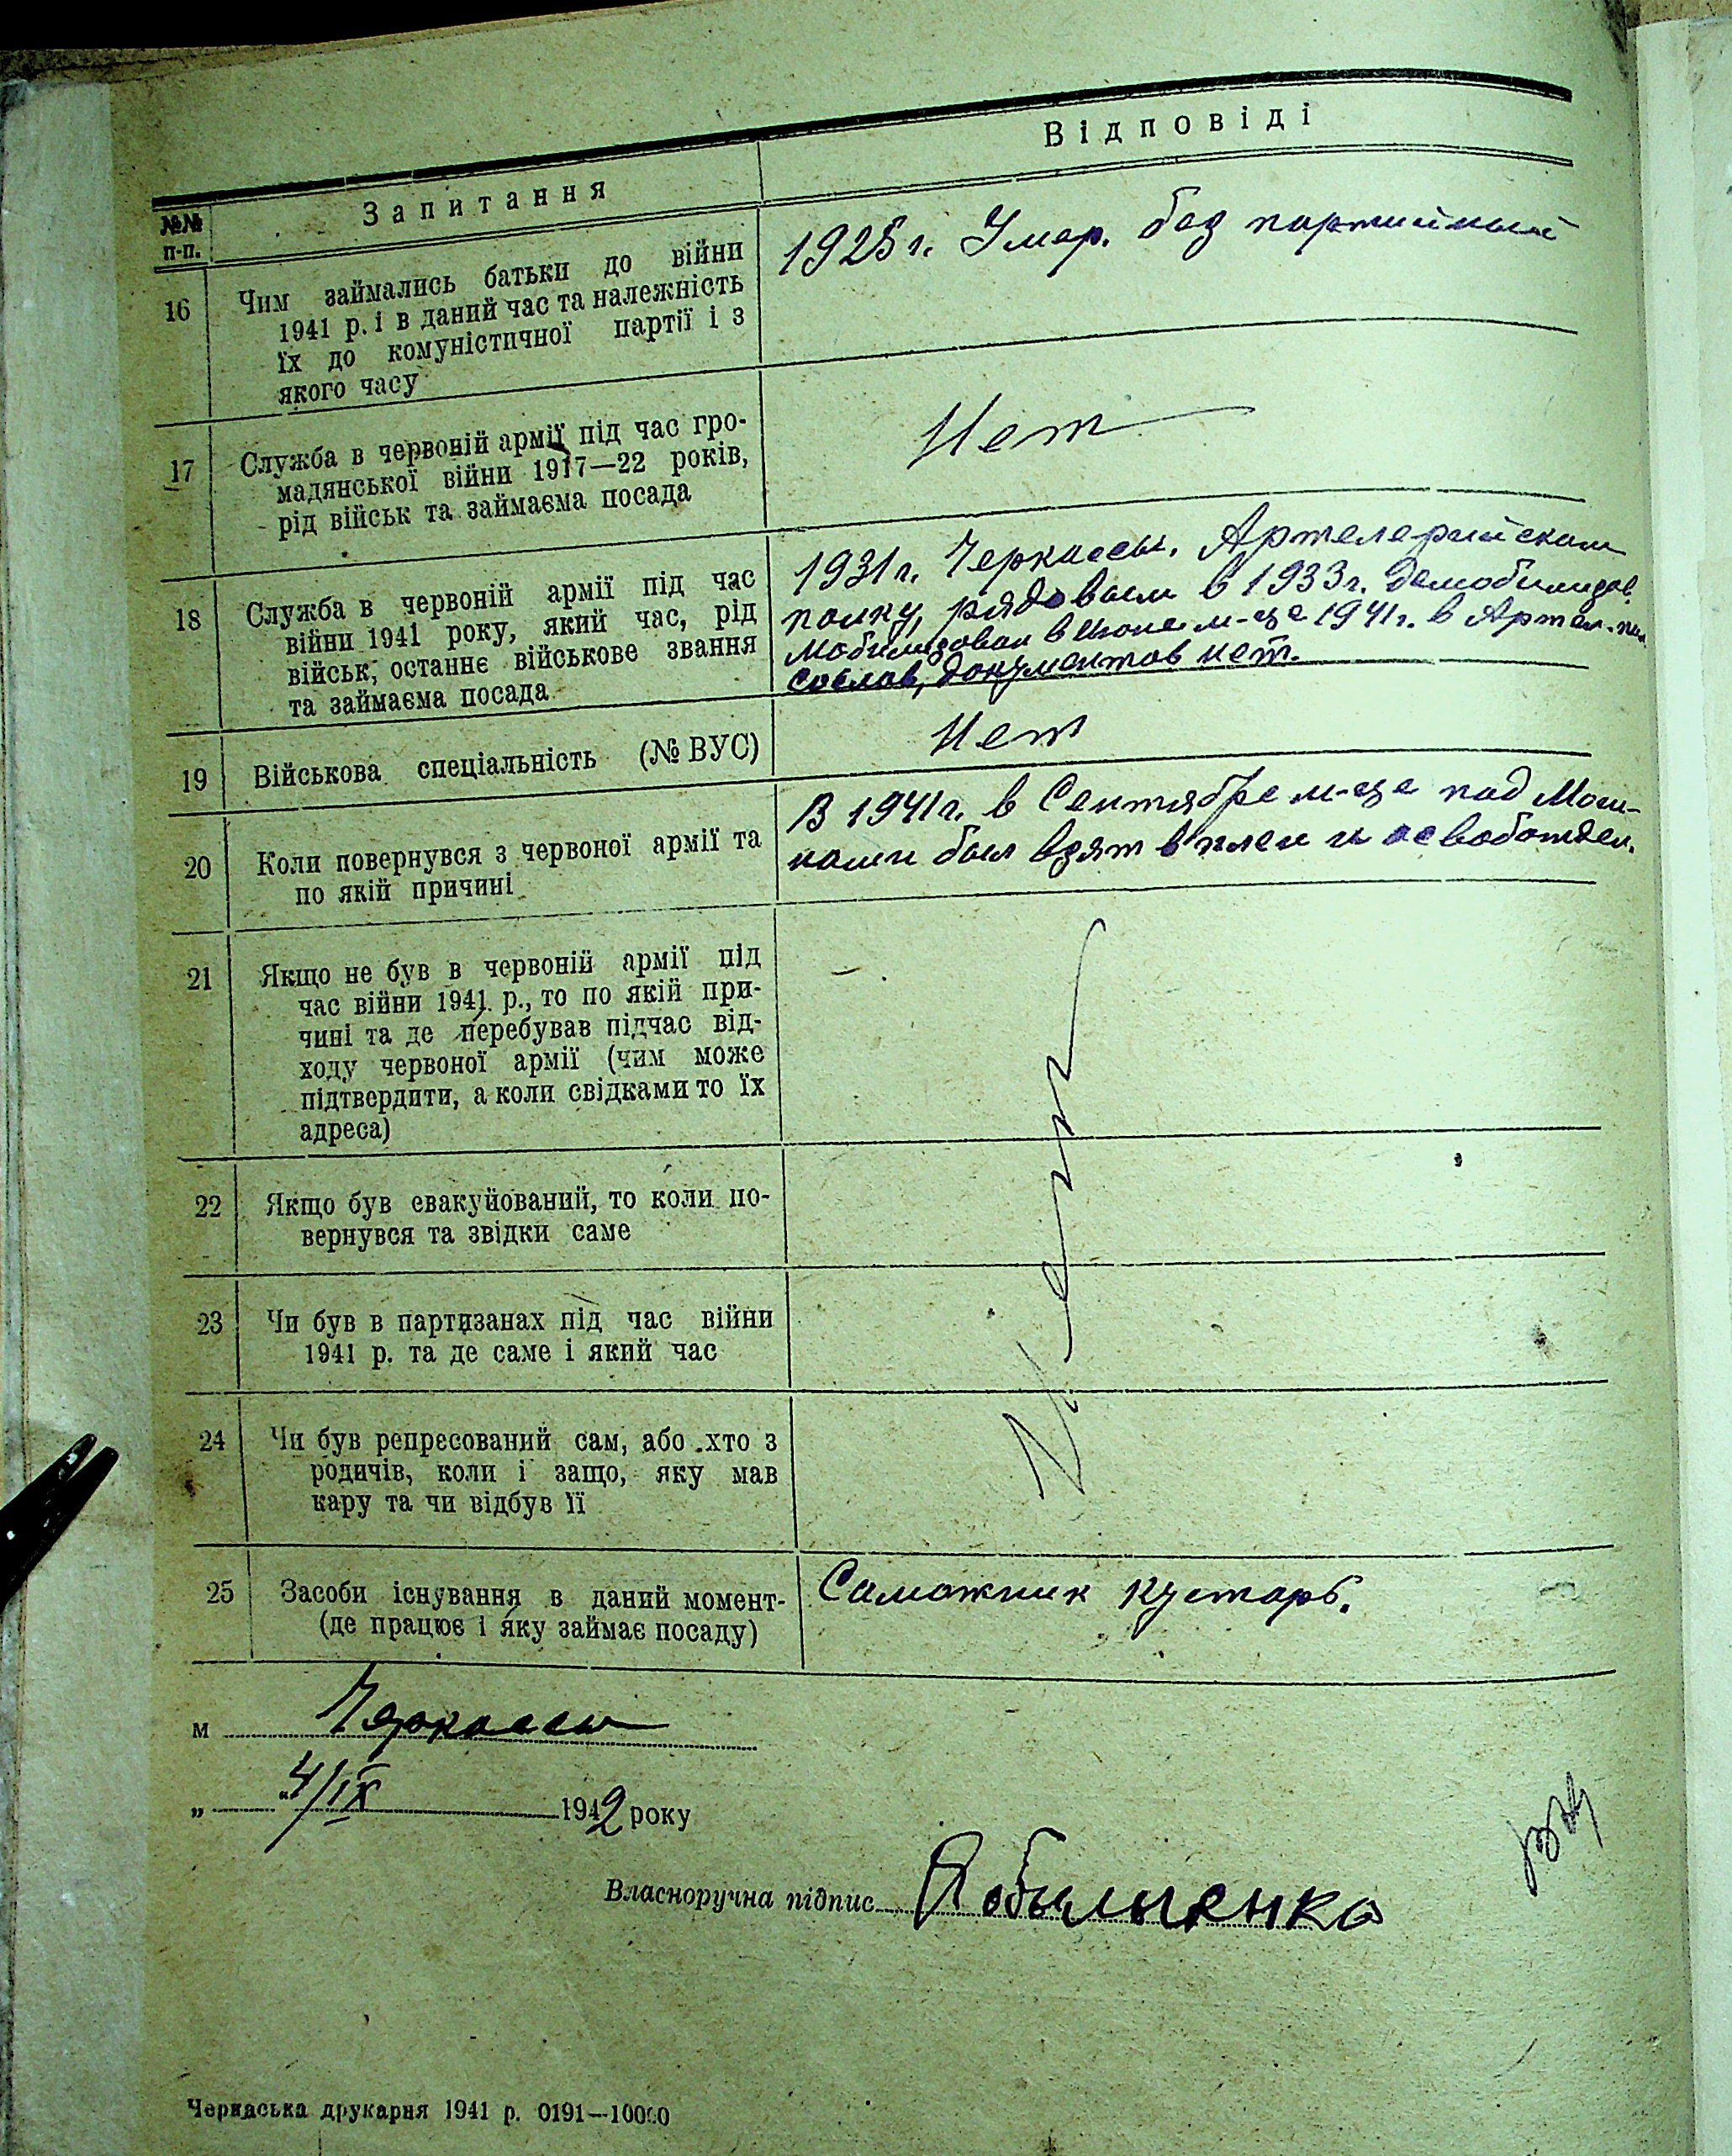 №№ п-п.
Запитання
Відповіді
16
Чим займались батьки до війни
1941 р. і в даний час та належність
їх до комуністичної партії і з
якого часу
1925 г. Умер. без партийный
17
Служба в червоній армії під час гро-
мадянської війни 1917—22 років,
рід військ та займаєма посада
Нет
18
Служба в червоній армії під час
війни 1941 року, який час, рід
військ, останнє військове звання
та займаєма посада
1931 г. Черкассы. Артелерийском
полку, рядовым в 1933 г. демобилизов.
Мобилизован в Июне м-це 1941 г. в Артел.
документов нет.
19
Військова спеціальність (№ ВУС)
Нет
20
Коли повернувся з червоної армії та
по якій причині
В 1941 г. в Сентябре м-це под Мош-
нами был взят в плен и освобожден.
21
Якщо не був в червоній армії під
час війни 1941 р., то по якій при-
чині та де перебував підчас від-
ходу червоної армії (чим може
підтвердити, а коли свідками то їх
адреса)
22
Якщо був евакуйований, то коли по-
вернувся та звідки саме
23
Чи був в партизанах під час війни
1941 р. та де саме і який час
24
Чи був репресований сам, або хто з
родичів, коли і защо, яку мав
кару та чи відбув її
Нет
25
Засоби існування в даний момент-
(де працює і яку займає посаду)
Саможник кустарь.
м Черкассы
„ “ 4/IX 1942 року
Власноручна підпис
Черкаська друкарня 1941 р. 0191—10000